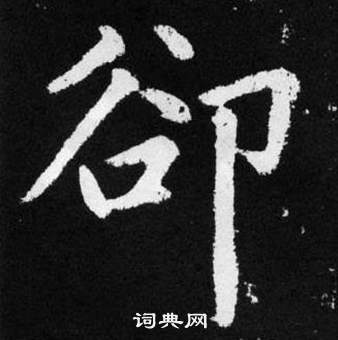 卻
词典网